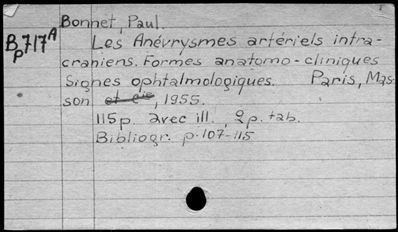 Bonnet, Paul.
Bp717A
Les Anévrysmes artériels intra-
craniens. Formes anatomo-cliniques
Signes ophtalmologiques. Paris, Mas-
son et cie, 1955.
115p. avec ill., 2p. tab.
Bibliogr. p.107-115